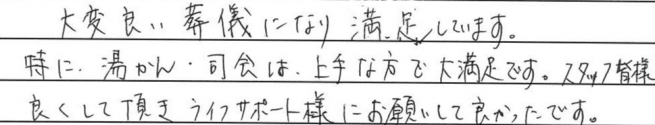 大変良い葬儀になり満足しています。
特に、湯かん・司会は、上手な方で大満足です。スタッフ皆様
良くして頂きライフサポート様にお願いして良かったです。